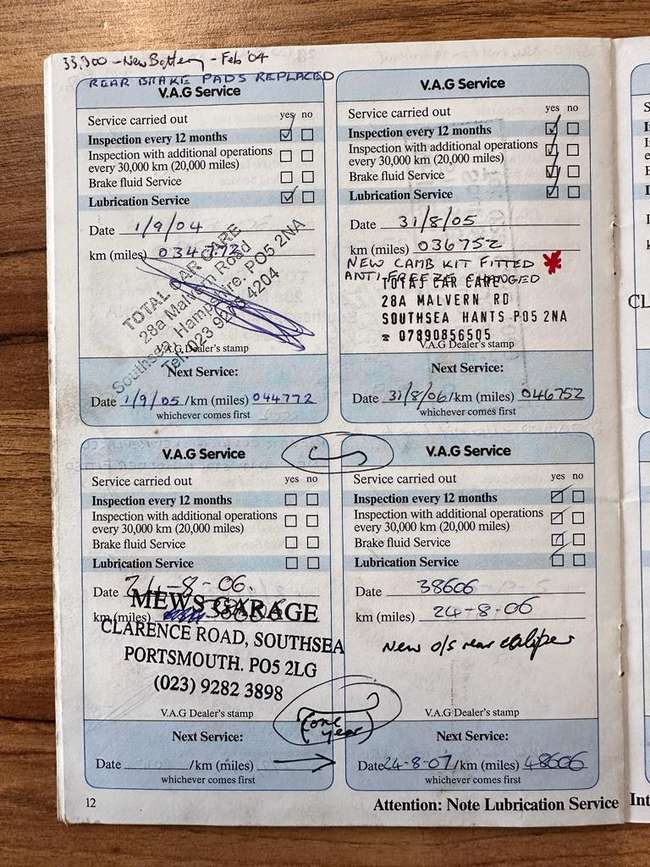 33,900 - New Battery - Feb '04
REAR BRAKE PADS REPLACED
V.A.G Service
Service carried out yes no
Inspection every 12 months
Inspection with additional operations
every 30,000 km (20,000 miles)
Brake fluid Service
Lubrication Service
Date 1/9/04
km (miles) 034772
TOTAL CAR CARE
28a Malvern Road
Southsea, Hampshire. PO5 2NA
Tel: 023 4204
V.A.G Dealer's stamp
Next Service:
Date 1/9/05 /km (miles) 044772
whichever comes first
V.A.G Service
Service carried out yes no
Inspection every 12 months
Inspection with additional operations
every 30,000 km (20,000 miles)
Brake fluid Service
Lubrication Service
Date 31/8/05
km (miles) 036752
NEW CAMB KIT FITTED *
ANTI-FREEZE CHANGED
TOTAL CAR CARE
28A MALVERN RD
SOUTHSEA HANTS PO5 2NA
☎ 07890856505
V.A.G Dealer's stamp
Next Service:
Date 31/8/06 /km (miles) 046752
whichever comes first
V.A.G Service
Service carried out yes no
Inspection every 12 months
Inspection with additional operations
every 30,000 km (20,000 miles)
Brake fluid Service
Lubrication Service
Date 24-8-06.
km (miles) 38606
MEWS GARAGE
CLARENCE ROAD, SOUTHSEA
PORTSMOUTH. PO5 2LG
(023) 9282 3898
V.A.G Dealer's stamp
(one
year)
Next Service:
Date /km (miles)
whichever comes first
V.A.G Service
Service carried out yes no
Inspection every 12 months
Inspection with additional operations
every 30,000 km (20,000 miles)
Brake fluid Service
Lubrication Service
Date 38606
km (miles) 24-8-06
New o/s rear caliper
V.A.G Dealer's stamp
Next Service:
Date 24-8-07 /km (miles) 48606
whichever comes first
12
Attention: Note Lubrication Service Int